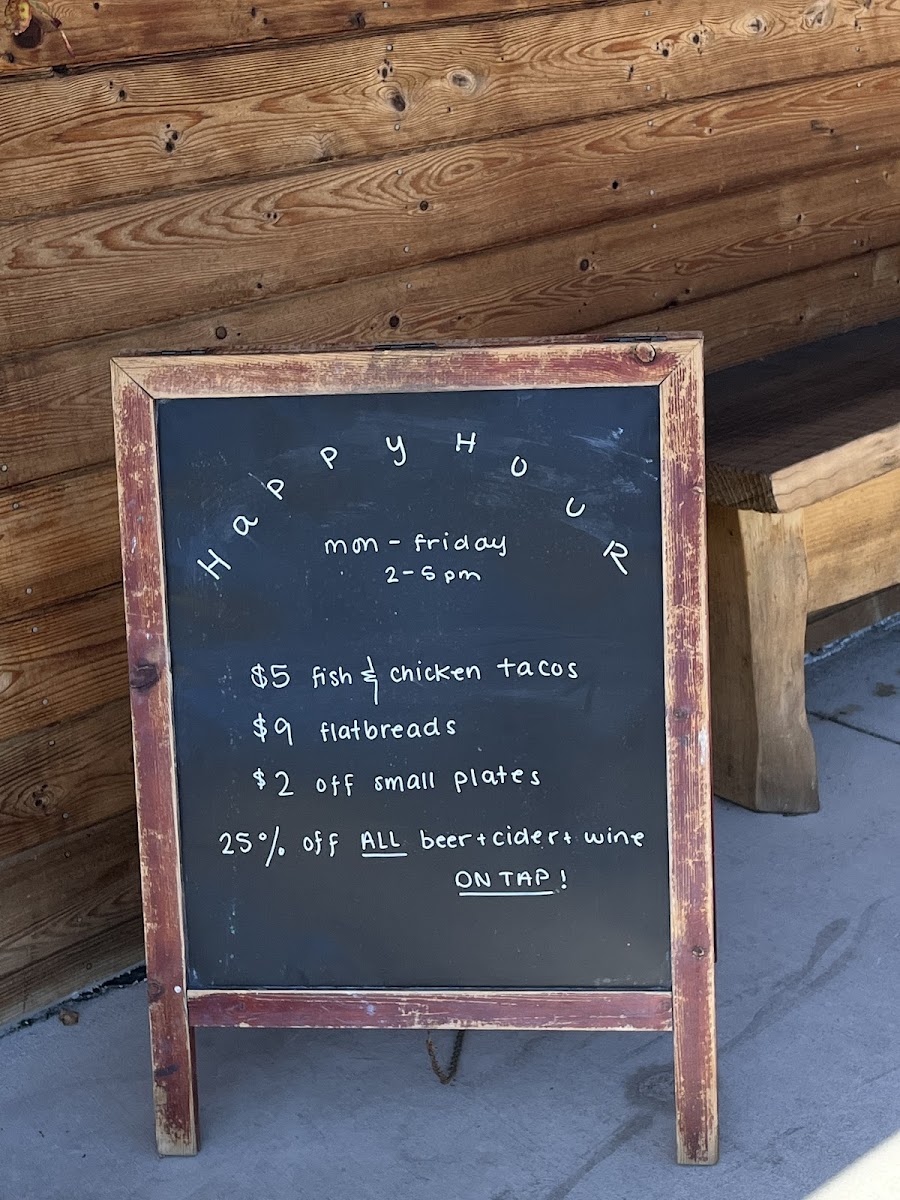 HaPPY HOUR
mon - friday
2-5pm
$5 fish & chicken tacos
$9 flatbreads
$2 off small plates
25% off ALL beer + cider + wine
ON TAP!